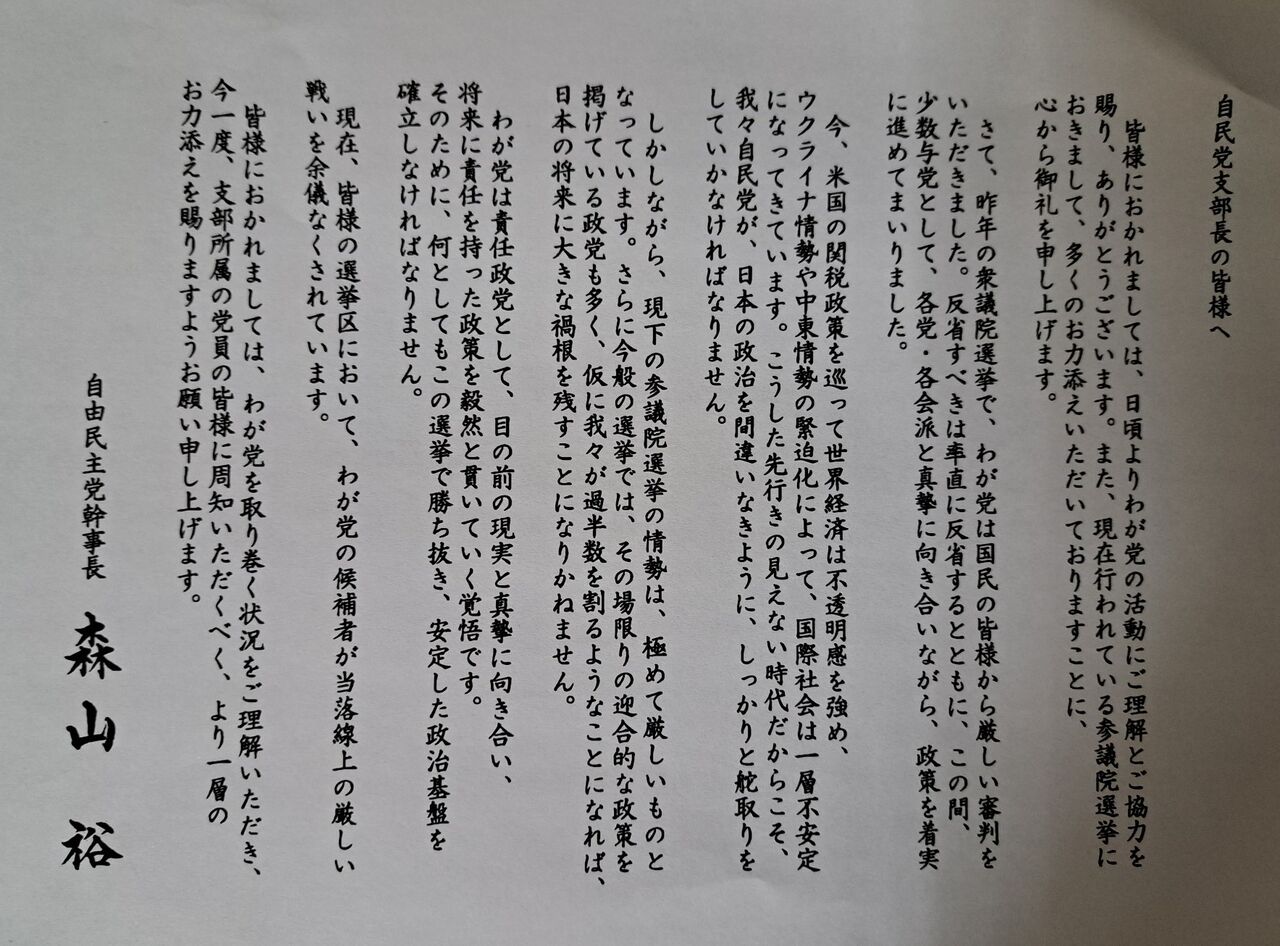 自民党支部長の皆様へ
皆様におかれましては、日頃よりわが党の活動にご理解とご協力を
賜り、ありがとうございます。また、現在行われている参議院選挙に
おきまして、多くのお力添えいただいておりますことに、
心から御礼を申し上げます。
さて、昨年の衆議院選挙で、わが党は国民の皆様から厳しい審判を
いただきました。反省すべきは率直に反省するとともに、この間、
少数与党として、各党・各会派と真摯に向き合いながら、政策を着実
に進めてまいりました。
今、米国の関税政策を巡って世界経済は不透明感を強め、
ウクライナ情勢や中東情勢の緊迫化によって、国際社会は一層不安定
になってきています。こうした先行きの見えない時代だからこそ、
我々自民党が、日本の政治を間違いなきように、しっかりと舵取りを
していかなければなりません。
しかしながら、現下の参議院選挙の情勢は、極めて厳しいものと
なっています。さらに今般の選挙では、その場限りの迎合的な政策を
掲げている政党も多く、仮に我々が過半数を割るようなことになれば、
日本の将来に大きな禍根を残すことになりかねません。
わが党は責任政党として、目の前の現実と真摯に向き合い、
将来に責任を持った政策を毅然と貫いていく覚悟です。
そのために、何としてもこの選挙で勝ち抜き、安定した政治基盤を
確立しなければなりません。
現在、皆様の選挙区において、わが党の候補者が当落線上の厳しい
戦いを余儀なくされています。
皆様におかれましては、わが党を取り巻く状況をご理解いただき、
今一度、支部所属の党員の皆様に周知いただくべく、より一層の
お力添えを賜りますようお願い申し上げます。
自由民主党幹事長 森山 裕